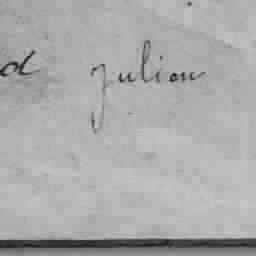 d Julian